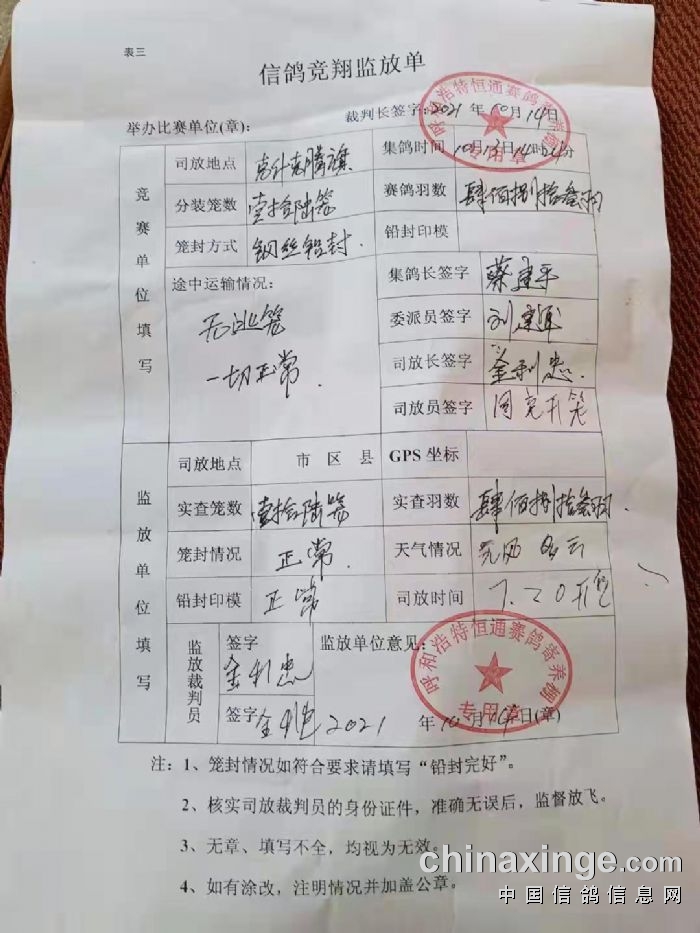 表三
信鸽竞翔监放单
裁判长签字: 2021 年 10 月 14 日
举办比赛单位(章):
呼和浩特恒通赛鸽寄养棚
专用章
竞赛单位填写
司放地点 克什克腾旗 集鸽时间 10月13日14时 分
分装笼数 壹拾陆笼 赛鸽羽数 肆佰捌拾叁羽
笼封方式 钢丝铅封. 铅封印模
途中运输情况: 集鸽长签字 蔡建平
无逃笼 委派员签字 刘
一切正常. 司放长签字 金利忠.
司放员签字
监放单位填写
司放地点 市 区 县 GPS 坐标
实查笼数 壹拾陆笼 实查羽数 肆佰捌拾叁羽.
笼封情况 正常. 天气情况 无风 多云
铅封印模 正常 司放时间 7.20开笼
监放裁判员 签字 金利忠 监放单位意见:
签字 金利忠 2021 年 10 月 14 日(章)
呼和浩特恒通赛鸽寄养棚
专用章
注: 1、笼封情况如符合要求请填写“铅封完好”。
2、核实司放裁判员的身份证件，准确无误后，监督放飞。
3、无章、填写不全，均视为无效。
4、如有涂改，注明情况并加盖公章。
chinaxinge.com
中国信鸽信息网